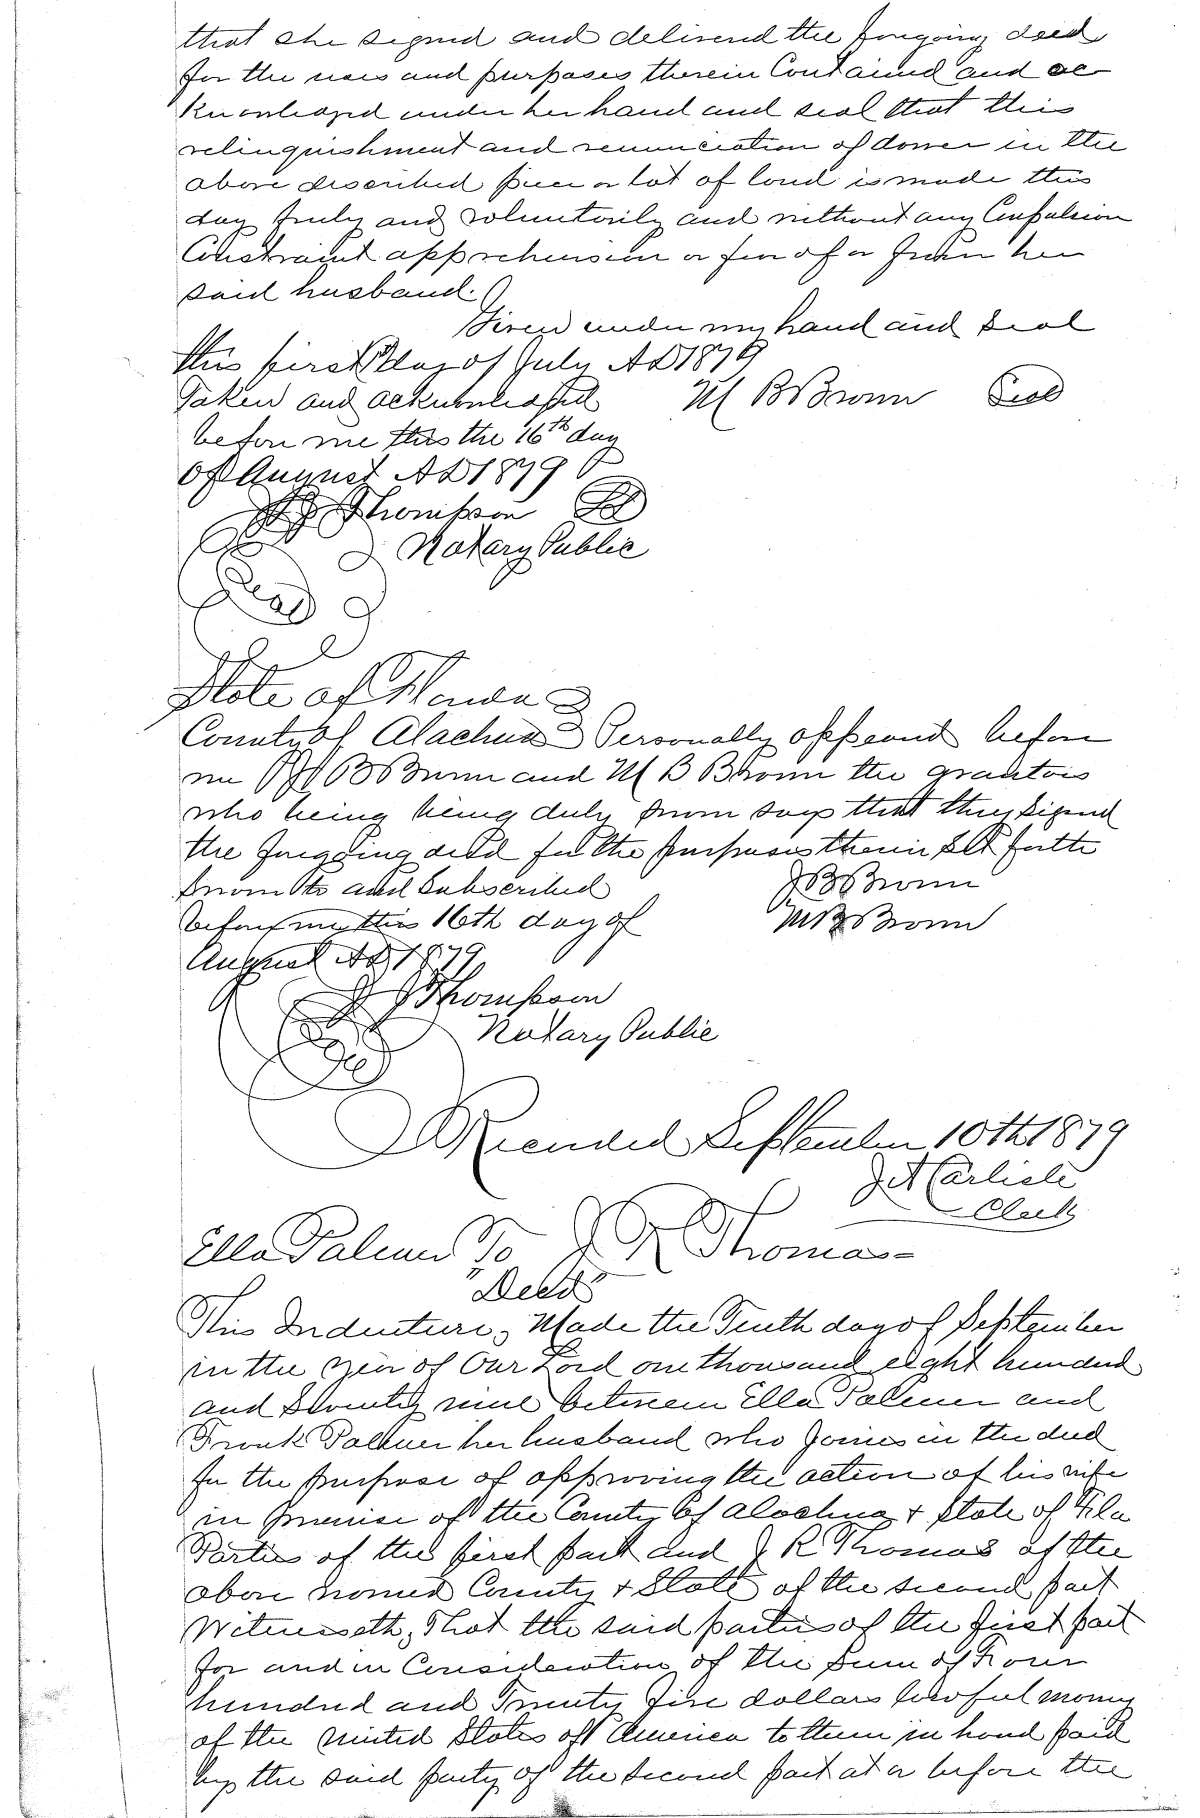 that she signed and delivered the foregoing deed
for the uses and purposes therein Contained and ac
knowledged under her hand and seal that this
relinquishment and renunciation of dower in the
above described piece or lot of land is made this
day freely and voluntarily and without any Compulsion
Constraint apprehension or fear of or from her
said husband.
Given under my hand and seal
this first day of July AD 1879
Taken and acknowledged M B Brown Seal
before me this the 16th day
of August AD 1879
J Thompson
Notary Public
Seal
State of Florida
County of Alachua Personally appeared before
me B Brown and M B Brown the grantors
who being being duly sworn says that they signed
the foregoing deed for the purposes therein set forth
Sworn to and Subscribed J B Brown
before me this 16th day of M B Brown
August AD 1879
J Thompson
Notary Public
Recorded September 10th 1879
J A Carlisle
Clerk
Ella Palmer To J R Thomas
"Deed"
This Indenture, Made the Tenth day of September
in the year of Our Lord one thousand eight hundred
and Seventy nine between Ella Palmer and
Frank Palmer her husband who joins in the deed
for the purpose of approving the action of his wife
in premise of the County of Alachua + State of Fla
Parties of the first part and J R Thomas of the
above named County + State of the second part
Witnesseth, That the said parties of the first part
for and in Consideration of the Sum of Four
hundred and Twenty five dollars lawful money
of the United States of America to them in hand paid
by the said party of the second part at or before the